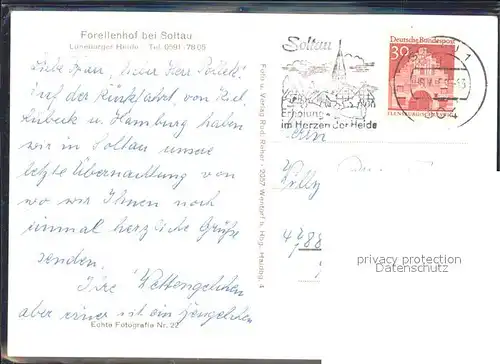 Forellenhof bei Soltau
Lüneburger Heide Tel. 0591 - 78 05
Liebe Frau, lieber Herr
Auf der Rückfahrt, von Kiel,
Lübeck u. Hamburg haben
wir in Soltau unsere
letzte Übernachtung von
wo wir Ihnen noch
einmal herzliche Grüße
senden.
Ihre
aber einer ist ein
Echte Fotografie Nr. 22
Foto u. Verlag Rud. Reiher - 2057 Wentorf b. Hbg., Hauptstr. 4
Soltau
Erholung
im Herzen der Heide
Deutsche Bundespost
30
Willy
privacy protection
Datenschutz